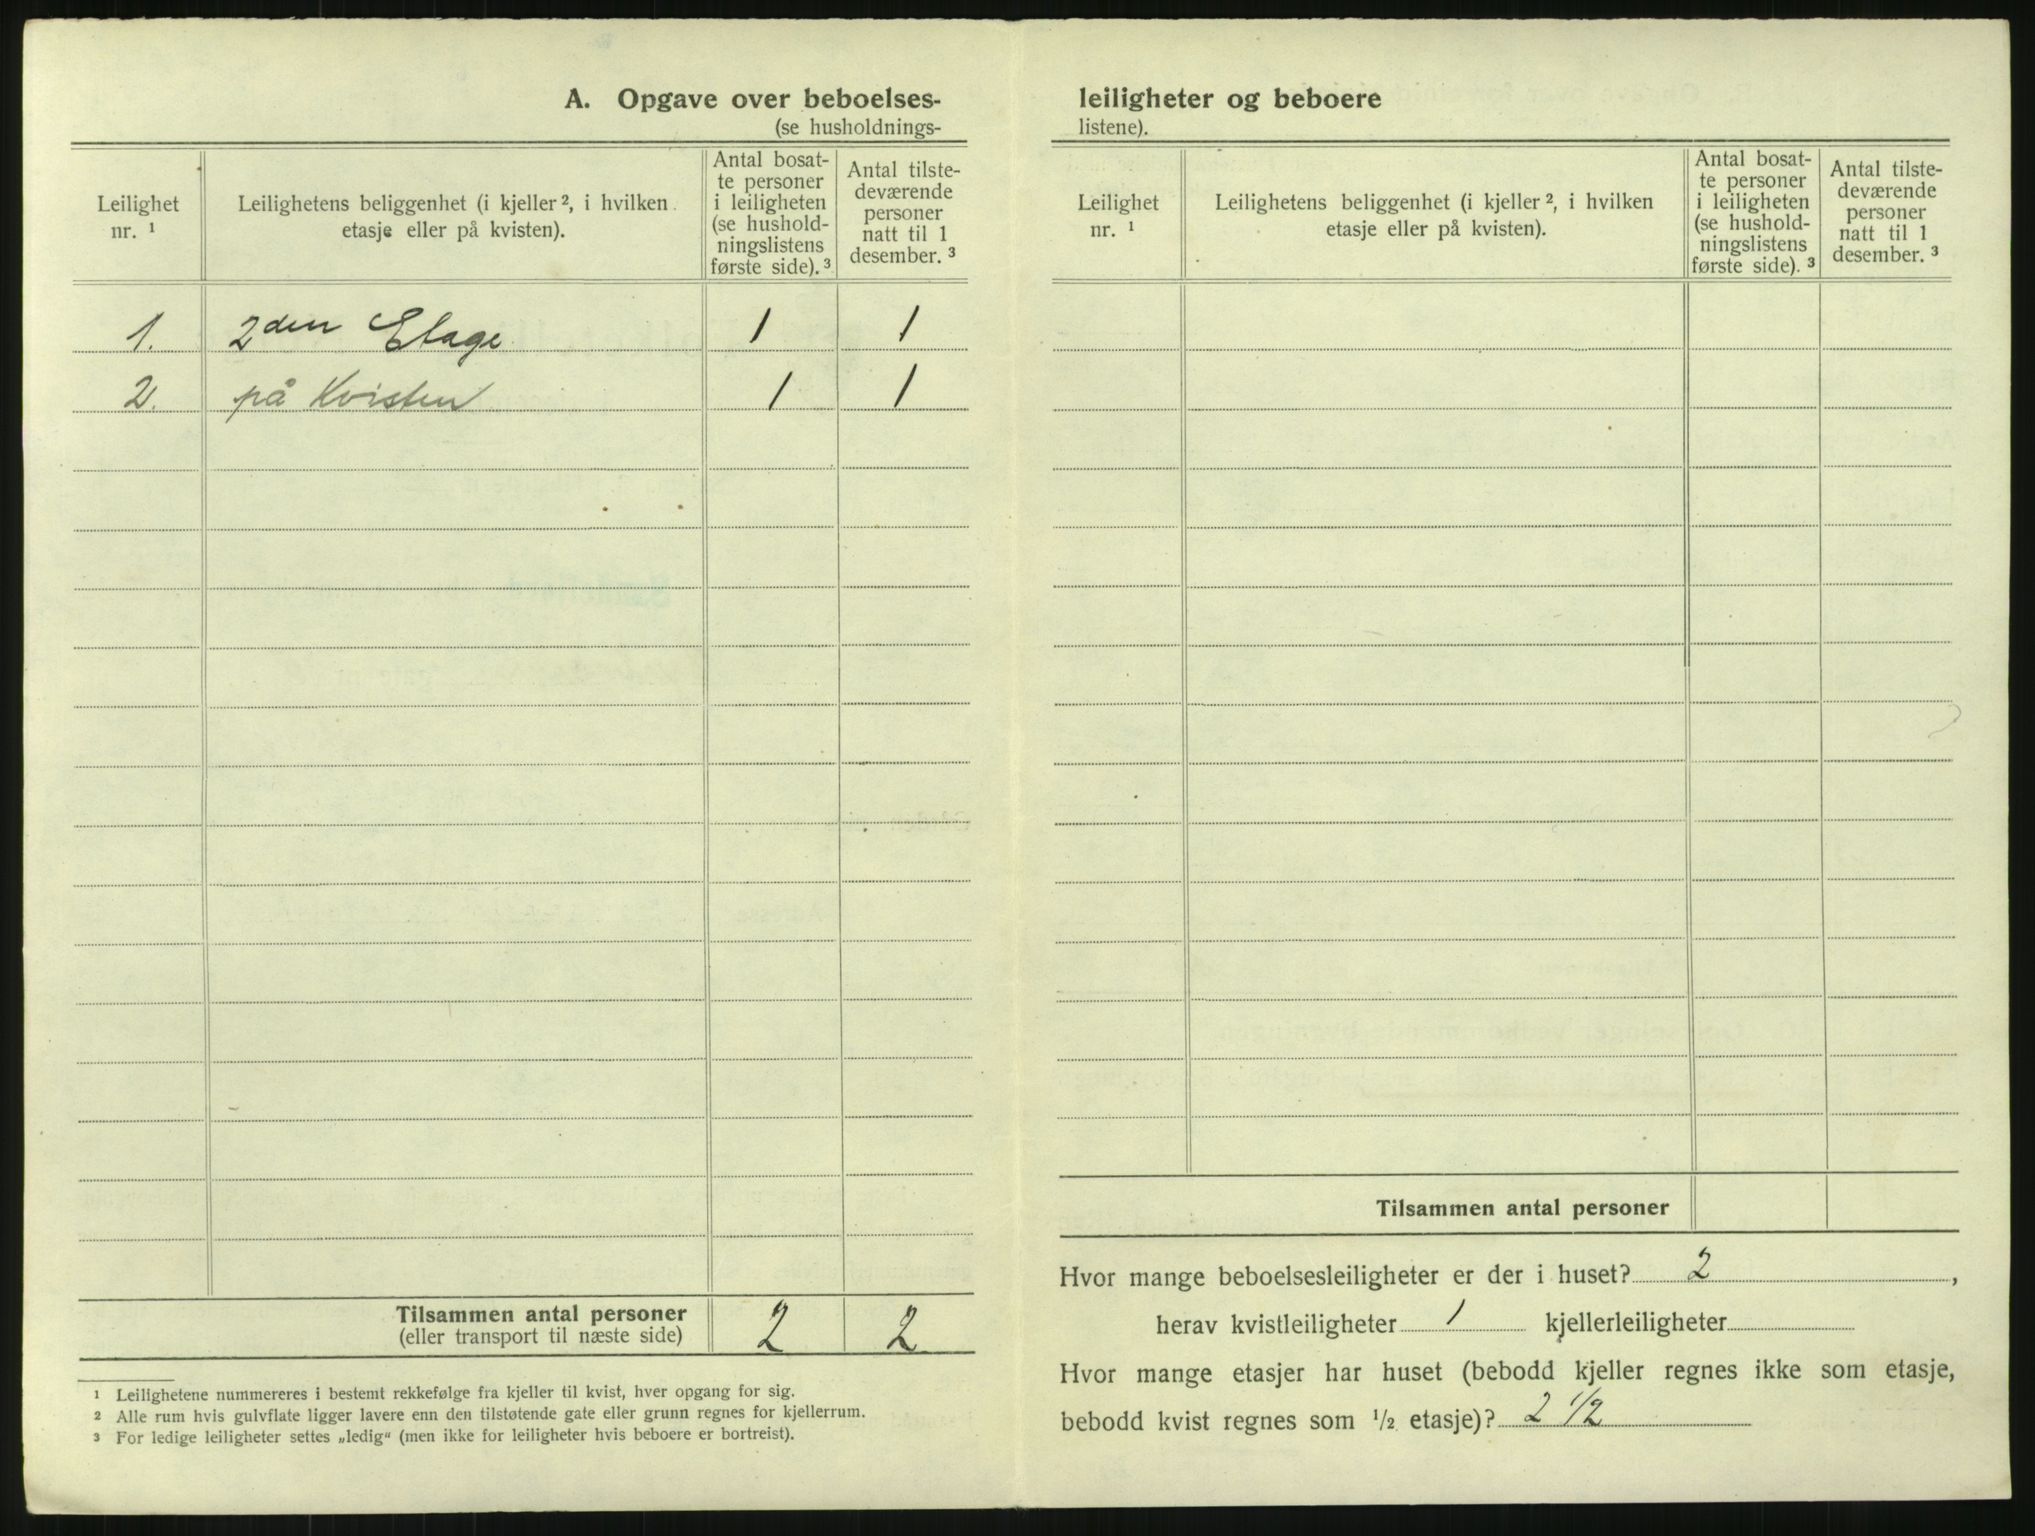 A. Opgave over beboelses-
(se husholdnings-
Leilighet
nr. ¹
Leilighetens beliggenhet (i kjeller ², i hvilken
etasje eller på kvisten).
Antal bosat-
te personer
i leiligheten
(se hushold-
ningslistens
første side). ³
Antal tilste-
deværende
personer
natt til 1
desember. ³
1. 2den Etage 1 1
2. på Kvisten 1 1
Tilsammen antal personer 2 2
(eller transport til næste side)
¹ Leilighetene nummereres i bestemt rekkefølge fra kjeller til kvist, hver opgang for sig.
² Alle rum hvis gulvflate ligger lavere enn den tilstøtende gate eller grunn regnes for kjellerrum.
³ For ledige leiligheter settes „ledig“ (men ikke for leiligheter hvis beboere er bortreist).
leiligheter og beboere
listene).
Leilighet
nr. ¹
Leilighetens beliggenhet (i kjeller ², i hvilken
etasje eller på kvisten).
Antal bosat-
te personer
i leiligheten
(se hushold-
ningslistens
første side). ³
Antal tilste-
deværende
personer
natt til 1
desember. ³
Tilsammen antal personer
Hvor mange beboelsesleiligheter er der i huset? 2,
herav kvistleiligheter 1 kjellerleiligheter
Hvor mange etasjer har huset (bebodd kjeller regnes ikke som etasje,
bebodd kvist regnes som ½ etasje)? 2 1/2